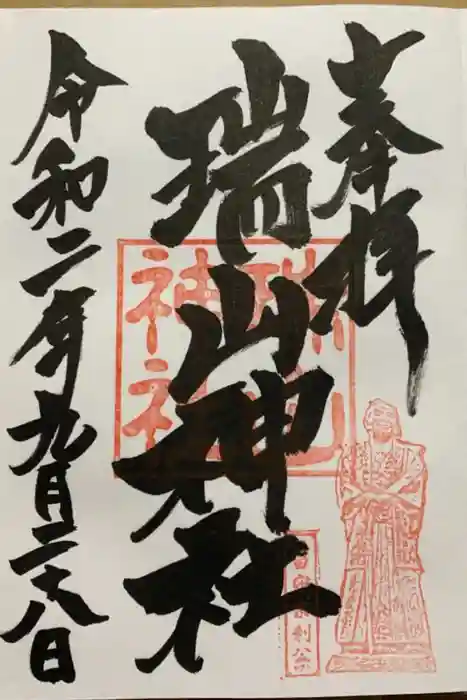 奉拝
瑞山神社
令和二年九月二十八日
瑞山神社